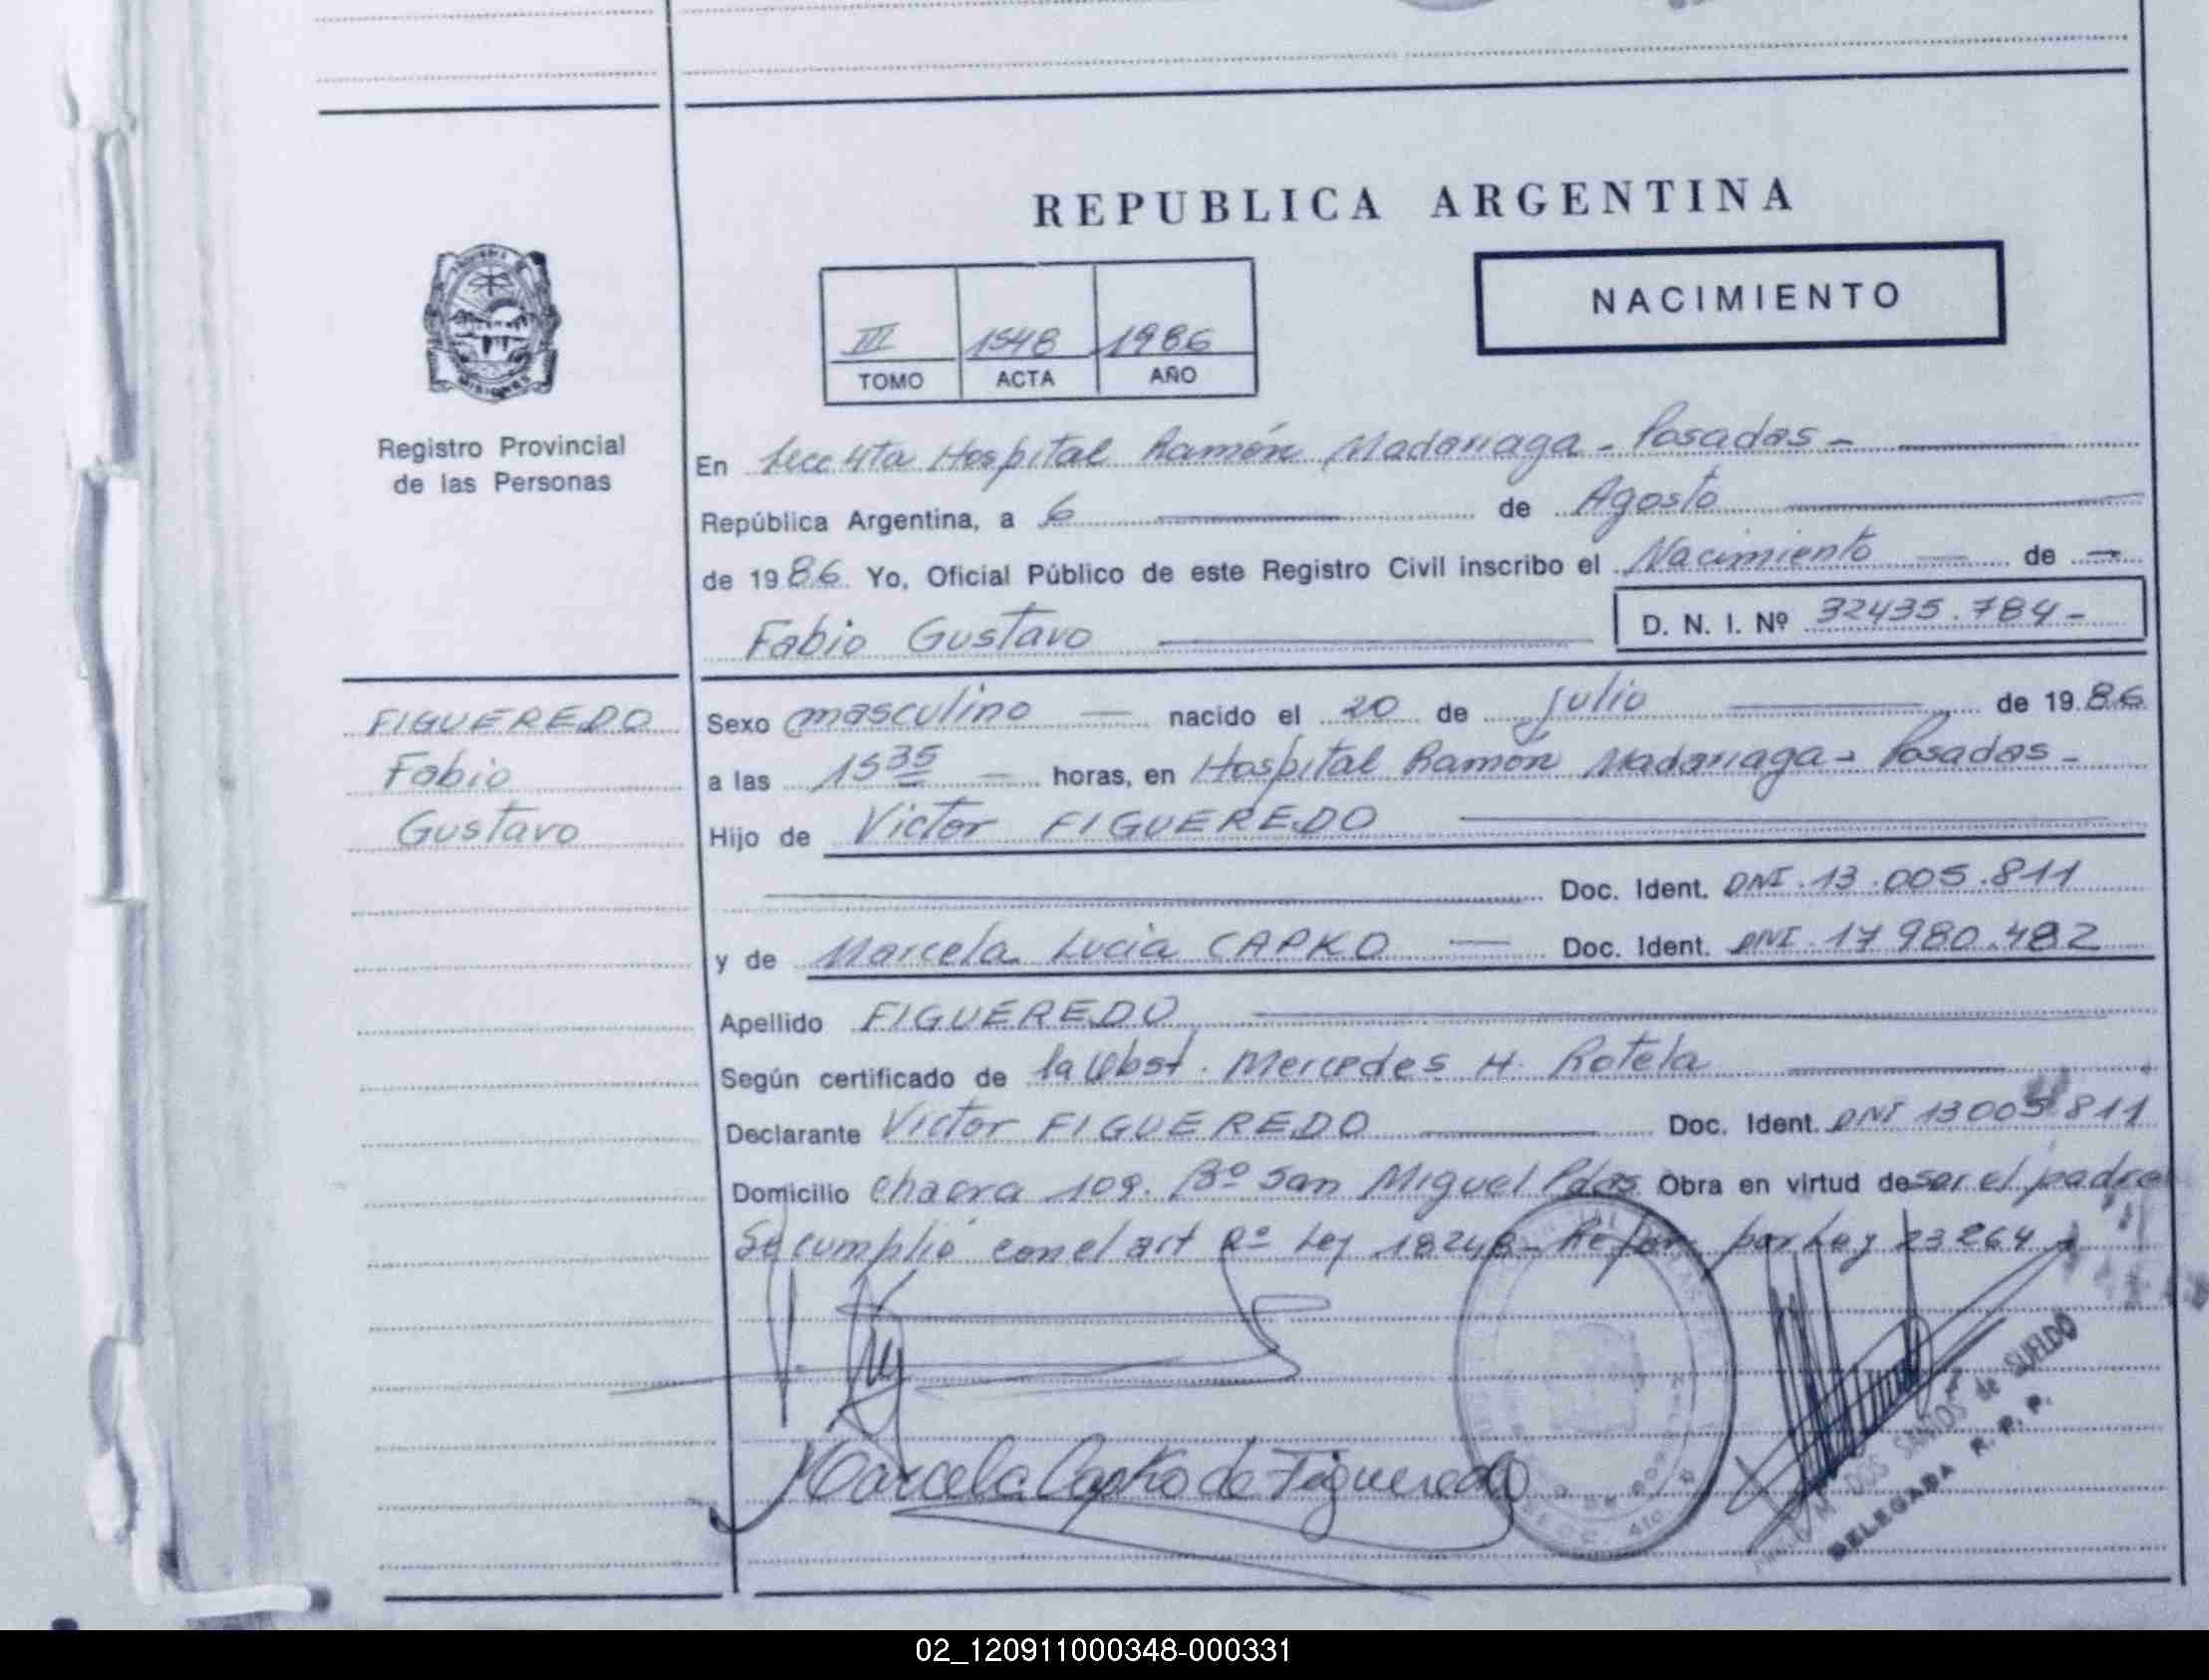 REPUBLICA ARGENTINA
NACIMIENTO
III 1548 1986
TOMO ACTA AÑO
MISIONES
Registro Provincial
de las Personas
En Secc 4ta Hospital Ramón Madariaga - Posadas -
República Argentina, a 6 de Agosto
de 1986 Yo, Oficial Público de este Registro Civil inscribo el Nacimiento de
Fabio Gustavo D. N. I. Nº 32435.784-
FIGUEREDO
Fabio
Gustavo
Sexo masculino nacido el 20 de Julio de 1986
a las 15 35 horas, en Hospital Ramón Madariaga - Posadas -
Hijo de Victor FIGUEREDO
Doc. Ident. DNI. 13.005.811
y de Marcela Lucia CAPKO Doc. Ident. DNI. 17 980.482
Apellido FIGUEREDO
Según certificado de la Obst. Mercedes H. Rotela
Declarante Victor FIGUEREDO Doc. Ident. DNI 13005.811
Domicilio Chacra 109. Bº San Miguel Pdas Obra en virtud de ser el padre
Se cumplió con el art 2º Ley 18248 - Refor. por Ley 23264
Marcela Capko de Figueredo
SECC. 4ta
M. DOS SANTOS de SUELDO
DELEGADA R. P. P.
02_120911000348-000331